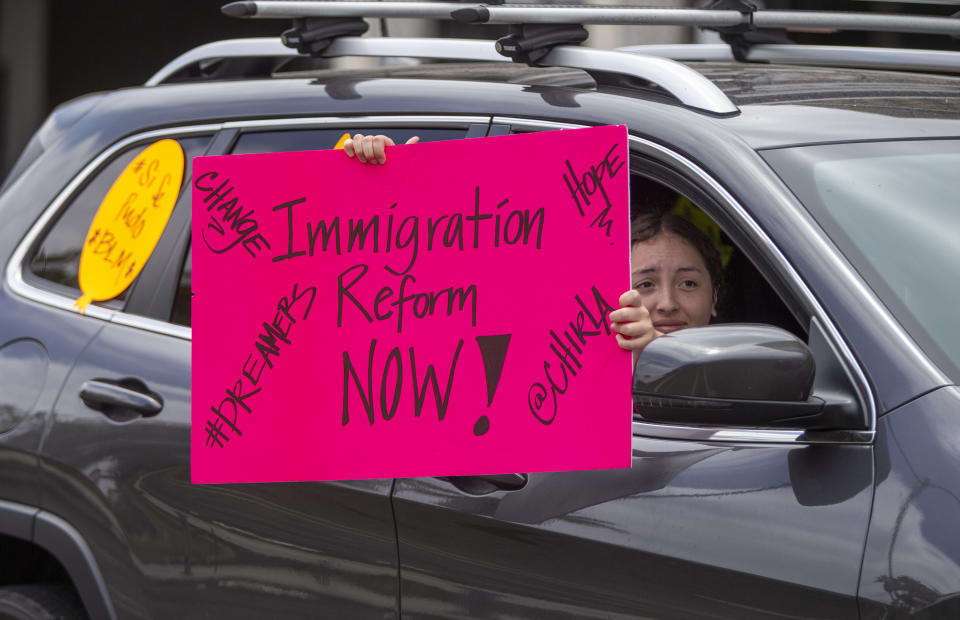 CHANGE
HOPE
Immigration
Reform
NOW!
#DREAMERS
@CHIRLA
#Si Se
Pudo
#BLM#